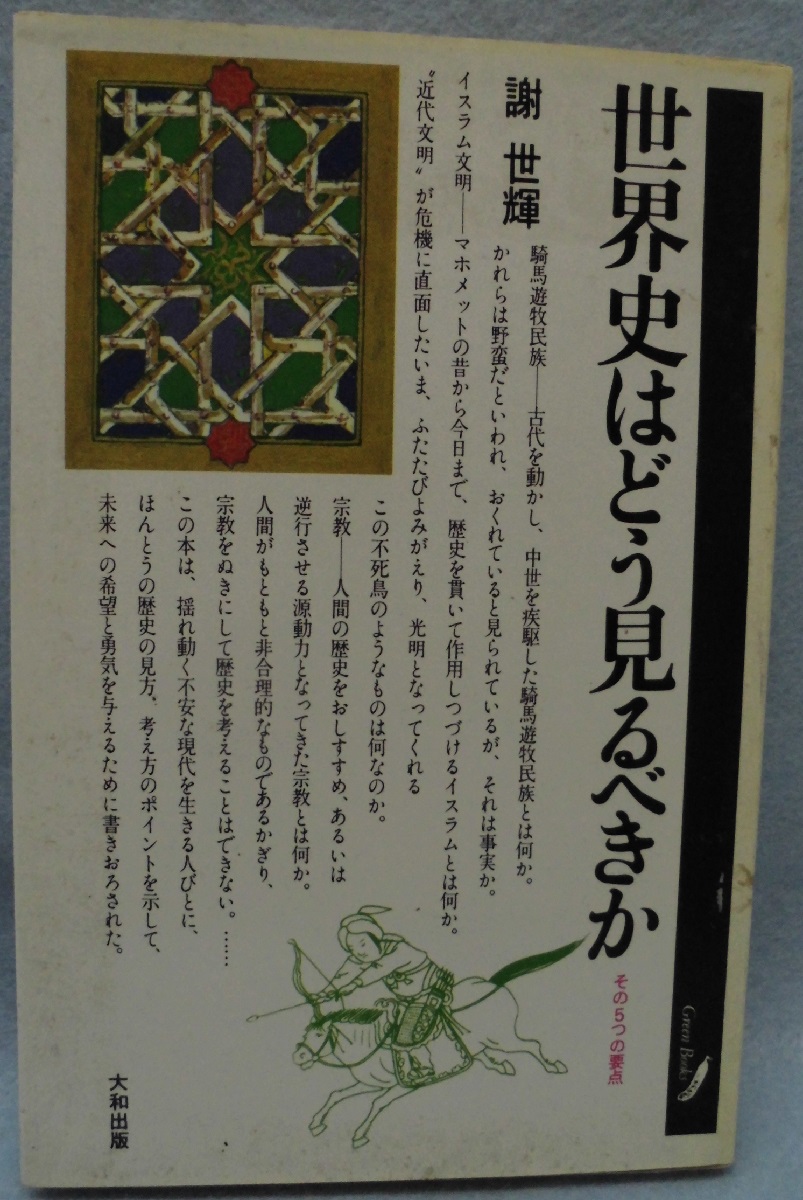 世界史はどう見るべきか
その5つの要点
Green Books
謝 世輝
騎馬遊牧民族――古代を動かし、中世を疾駆した騎馬遊牧民族とは何か。
かれらは野蛮だといわれ、おくれていると見られているが、それは事実か。
イスラム文明――マホメットの昔から今日まで、歴史を貫いて作用しつづけるイスラムとは何か。
〝近代文明〟が危機に直面したいま、ふたたびよみがえり、光明となってくれる
この不死鳥のようなものは何なのか。
宗教――人間の歴史をおしすすめ、あるいは
逆行させる源動力となってきた宗教とは何か。
人間がもともと非合理的なものであるかぎり、
宗教をぬきにして歴史を考えることはできない。……
この本は、揺れ動く不安な現代を生きる人びとに、
ほんとうの歴史の見方、考え方のポイントを示して、
未来への希望と勇気を与えるために書きおろされた。
大和出版